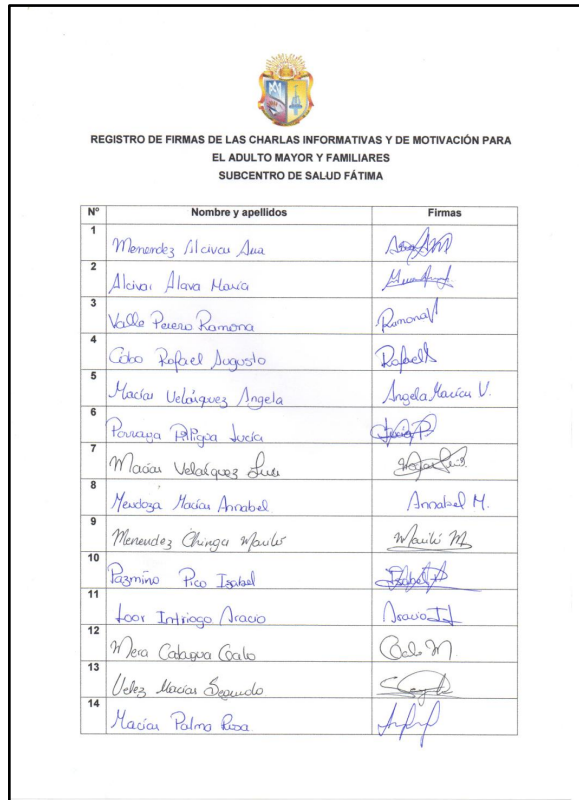 REGISTRO DE FIRMAS DE LAS CHARLAS INFORMATIVAS Y DE MOTIVACIÓN PARA
EL ADULTO MAYOR Y FAMILIARES
SUBCENTRO DE SALUD FÁTIMA
Nº Nombre y apellidos Firmas
1 Menendez Alcivar Ana
2 Alcivar Alava María
3 Valle Perero Ramona Ramona V
4 Cobo Rafael Augusto Rafael
5 Macías Velásquez Angela Angela Macías V.
6 Parraga Pilligua Lucía Lucía P
7 Macías Velásquez Luis
8 Mendoza Macías Annabel Annabel M.
9 Menendez Chinga Marilú Marilú M
10 Pazmiño Pico Isabel
11 Loor Intriago Aracio
12 Mera Catagua Galo Galo M.
13 Velez Macías Segundo
14 Macías Palma Rosa